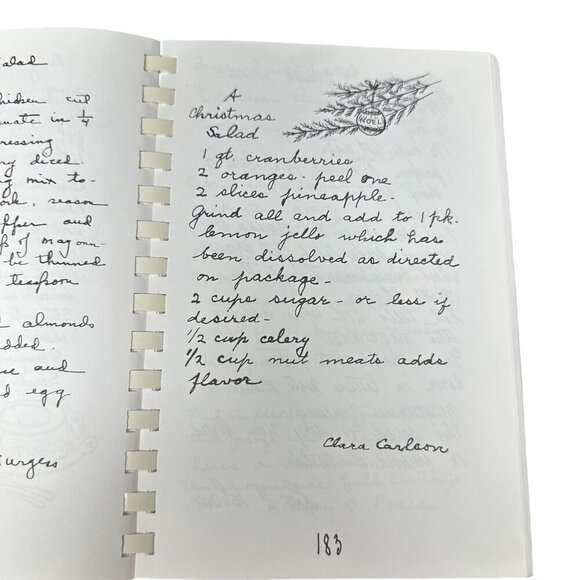 Salad
chicken cut
inate in 1/4
ressing
ry diced.
g mix to-
ork, season
pper and
of mayonn-
be thinned
teaspoon
almonds
dded.
se and
d egg
urgess
A
Christmas
Salad
NOEL
1 qt. cranberries
2 oranges - peel one
2 slices pineapple -
Grind all and add to 1 pk.
lemon jello which has
been dissolved as directed
on package -
2 cups sugar - or less if
desired -
1/2 cup celery
1/2 cup nut meats adds
flavor
Clara Carlson
183